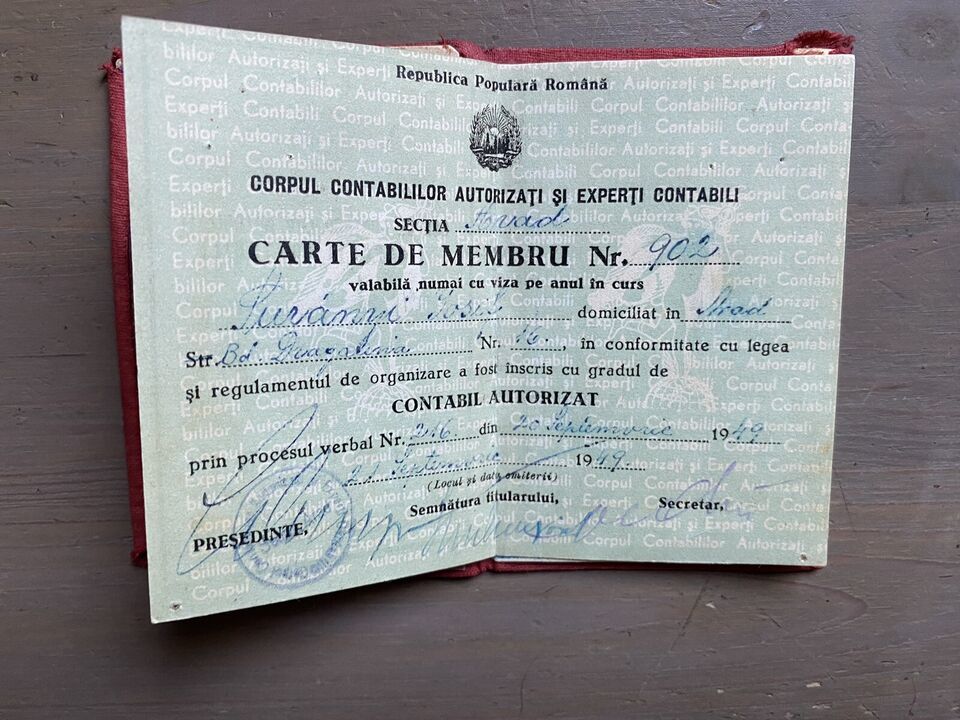 Republica Populară Română
CORPUL CONTABILILOR AUTORIZAȚI ȘI EXPERȚI CONTABILI
SECȚIA Arad
CARTE DE MEMBRU Nr. 902
valabilă numai cu viza pe anul în curs
Iosif domiciliat în Arad
Str. Bd. Dragalina Nr. 16, în conformitate cu legea
și regulamentul de organizare a fost inscris cu gradul de
CONTABIL AUTORIZAT
prin procesul verbal Nr. 246 din 20 Septemvrie 1949
21 Septemvrie 1949.
(Locul și data emiterii)
Semnătura titularului,
Secretar,
PREȘEDINTE,